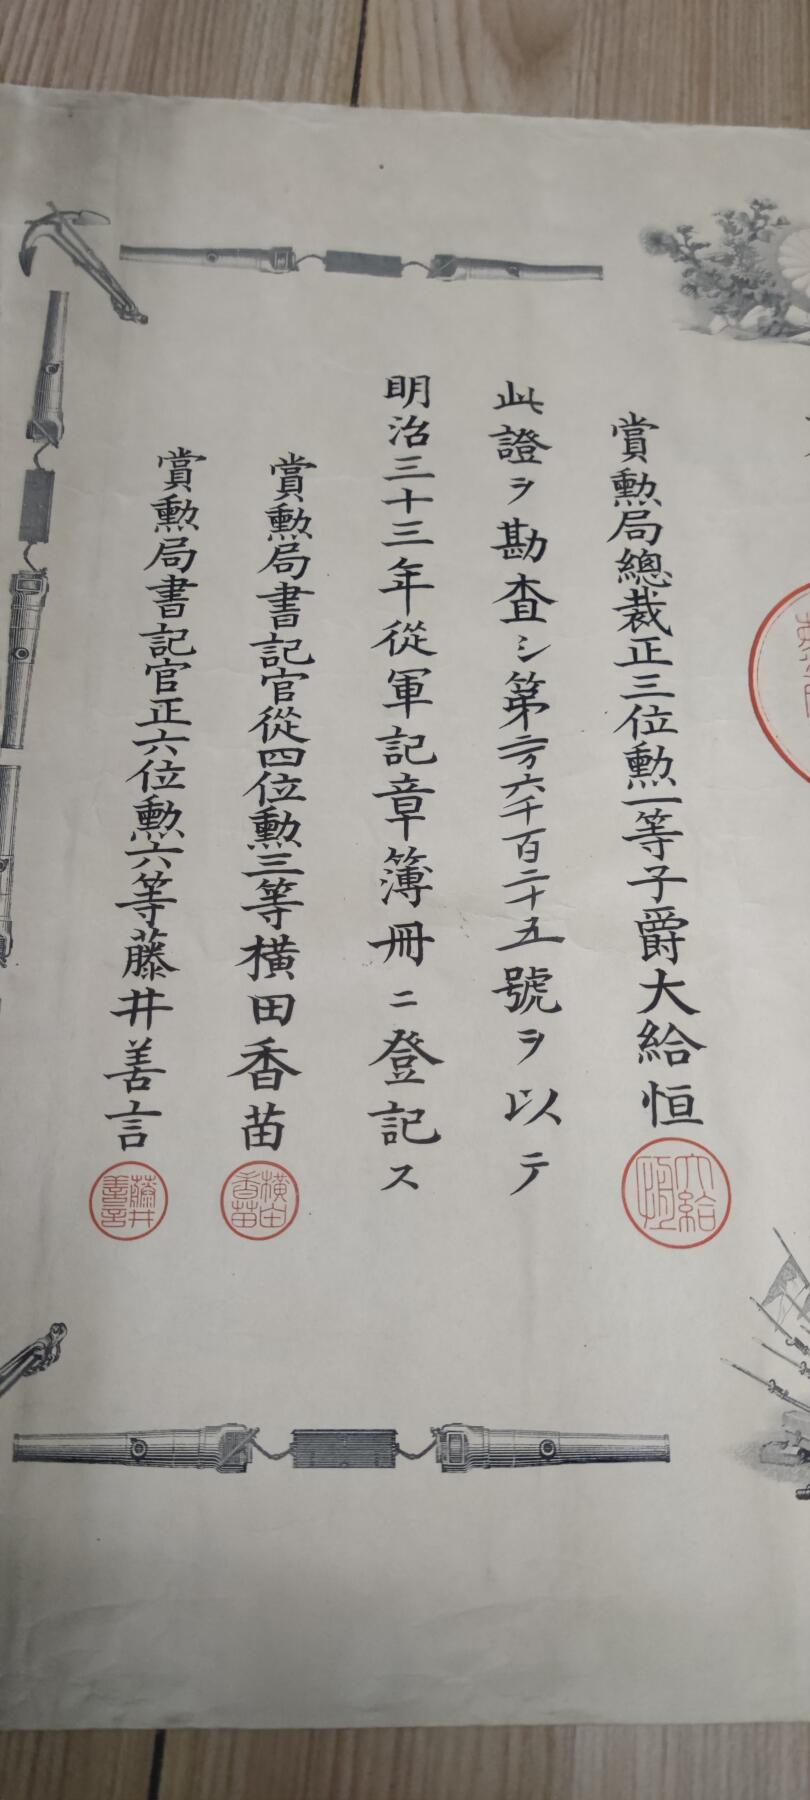 賞勲局總裁正三位勲一等子爵大給恒
大給恒
此證ヲ勘査シ第二万六千百二十五號ヲ以テ
明治三十三年從軍記章簿冊ニ登記ス
賞勲局書記官從四位勲三等横田香苗
横田香苗
賞勲局書記官正六位勲六等藤井善言
藤井善言